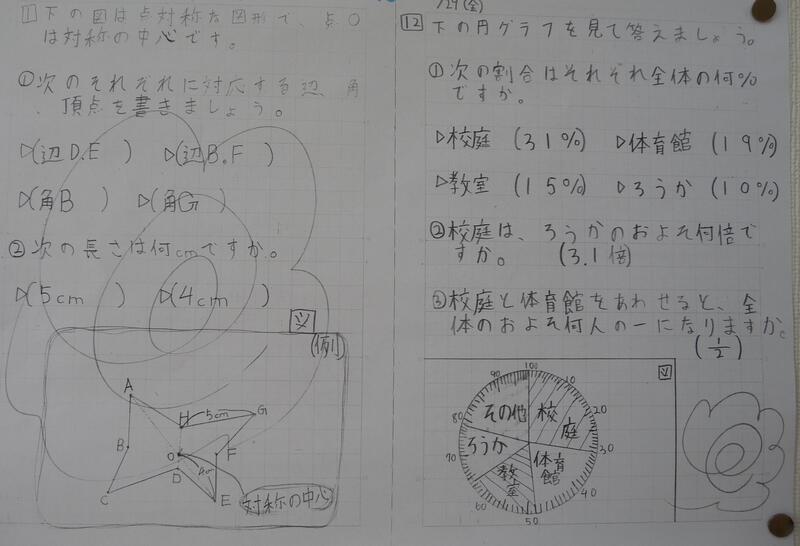 1 下の図は点対称な図形で、点O
は対称の中心です。
①次のそれぞれに対応する辺、角、
頂点を書きましょう。
▷(辺D.E ) ▷(辺B.F )
▷(角B ) ▷(角G )
②次の長さは何cmですか。
▷(5cm ) ▷(4cm )
図
(例)
A
H
5cm
G
B
O
F
D
4cm
C
E
対称の中心
1/29(金)
12 下の円グラフを見て答えましょう。
①次の割合はそれぞれ全体の何%
ですか。
▷校庭 (31%) ▷体育館 (19%)
▷教室 (15%) ▷ろうか (10%)
②校庭は、ろうかのおよそ何倍で
すか。 (3.1倍)
③校庭と体育館をあわせると、全
体のおよそ何人の一になりますか。
(1/2)
図
100
90
10
その他
校庭
80
20
ろうか
70
30
教室
体育館
60
40
50